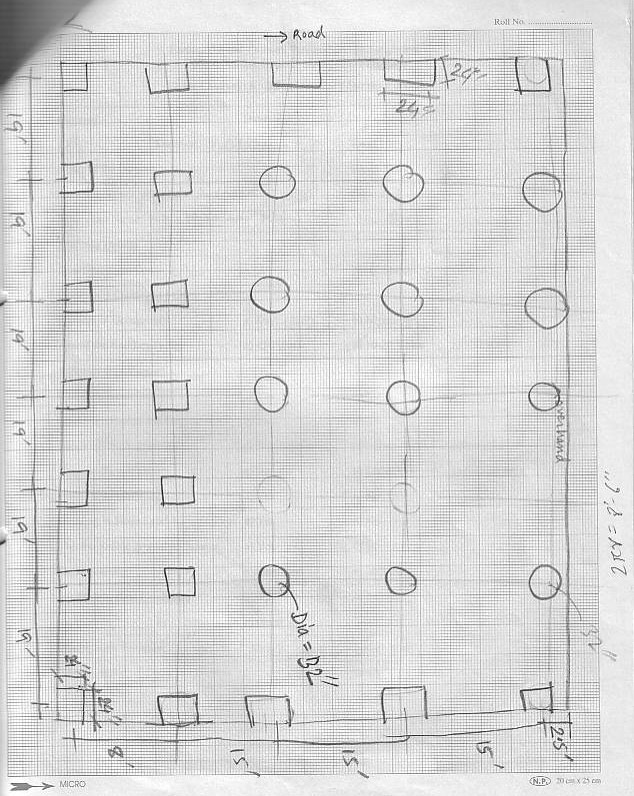 Roll No.
→ Road
24"
24"
19'
19'
19'
19'
19'
19'
overhand
2πr = 8'-6"
Dia = 32"
24"
8'
15'
15'
15'
2.5'
MICRO
N.P. 20 cm x 25 cm